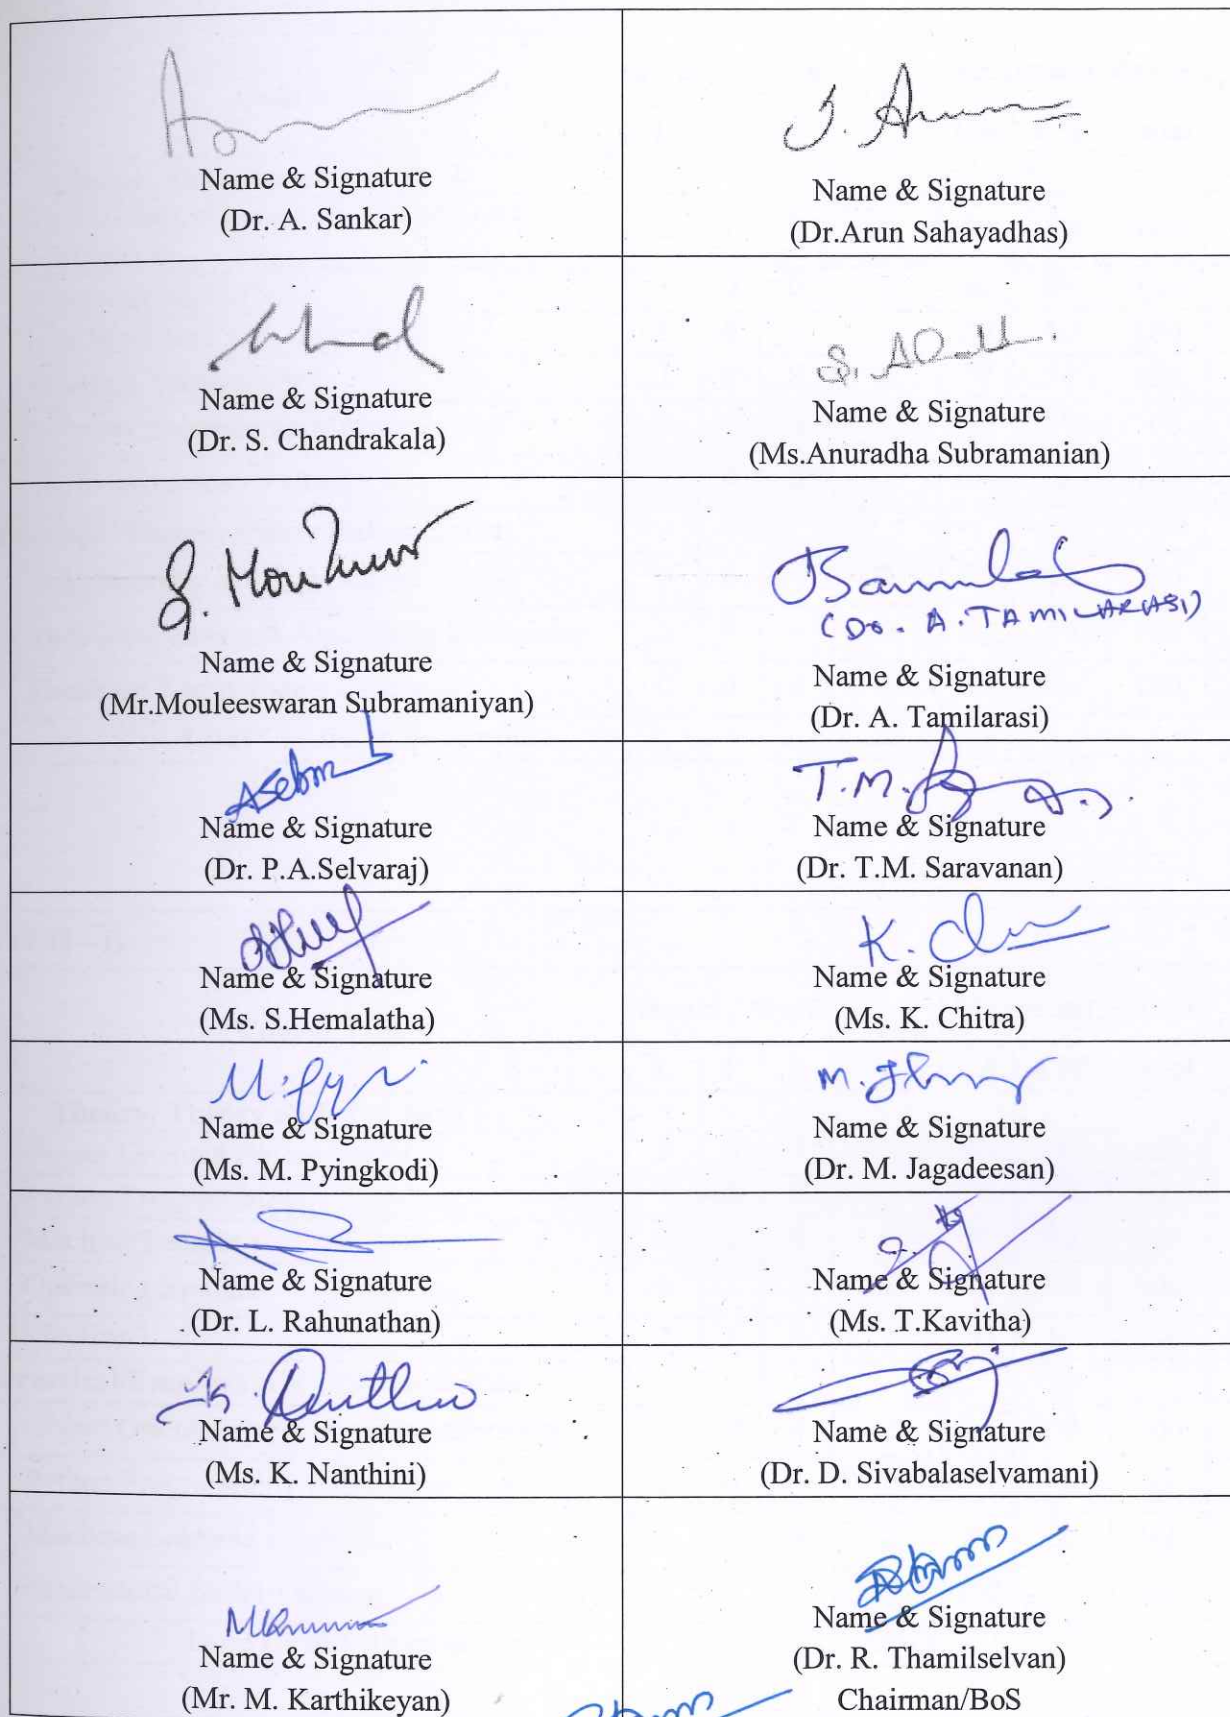 Name & Signature
(Dr. A. Sankar)
J. Arun
Name & Signature
(Dr.Arun Sahayadhas)
Name & Signature
(Dr. S. Chandrakala)
Name & Signature
(Ms.Anuradha Subramanian)
Name & Signature
(Mr.Mouleeswaran Subramaniyan)
(Dr. A. TAMILARASI)
Name & Signature
(Dr. A. Tamilarasi)
Name & Signature
(Dr. P.A.Selvaraj)
T.M.
Name & Signature
(Dr. T.M. Saravanan)
Name & Signature
(Ms. S.Hemalatha)
K.
Name & Signature
(Ms. K. Chitra)
Name & Signature
(Ms. M. Pyingkodi)
M.
Name & Signature
(Dr. M. Jagadeesan)
Name & Signature
(Dr. L. Rahunathan)
Name & Signature
(Ms. T.Kavitha)
Name & Signature
(Ms. K. Nanthini)
Name & Signature
(Dr. D. Sivabalaselvamani)
Name & Signature
(Mr. M. Karthikeyan)
Name & Signature
(Dr. R. Thamilselvan)
Chairman/BoS